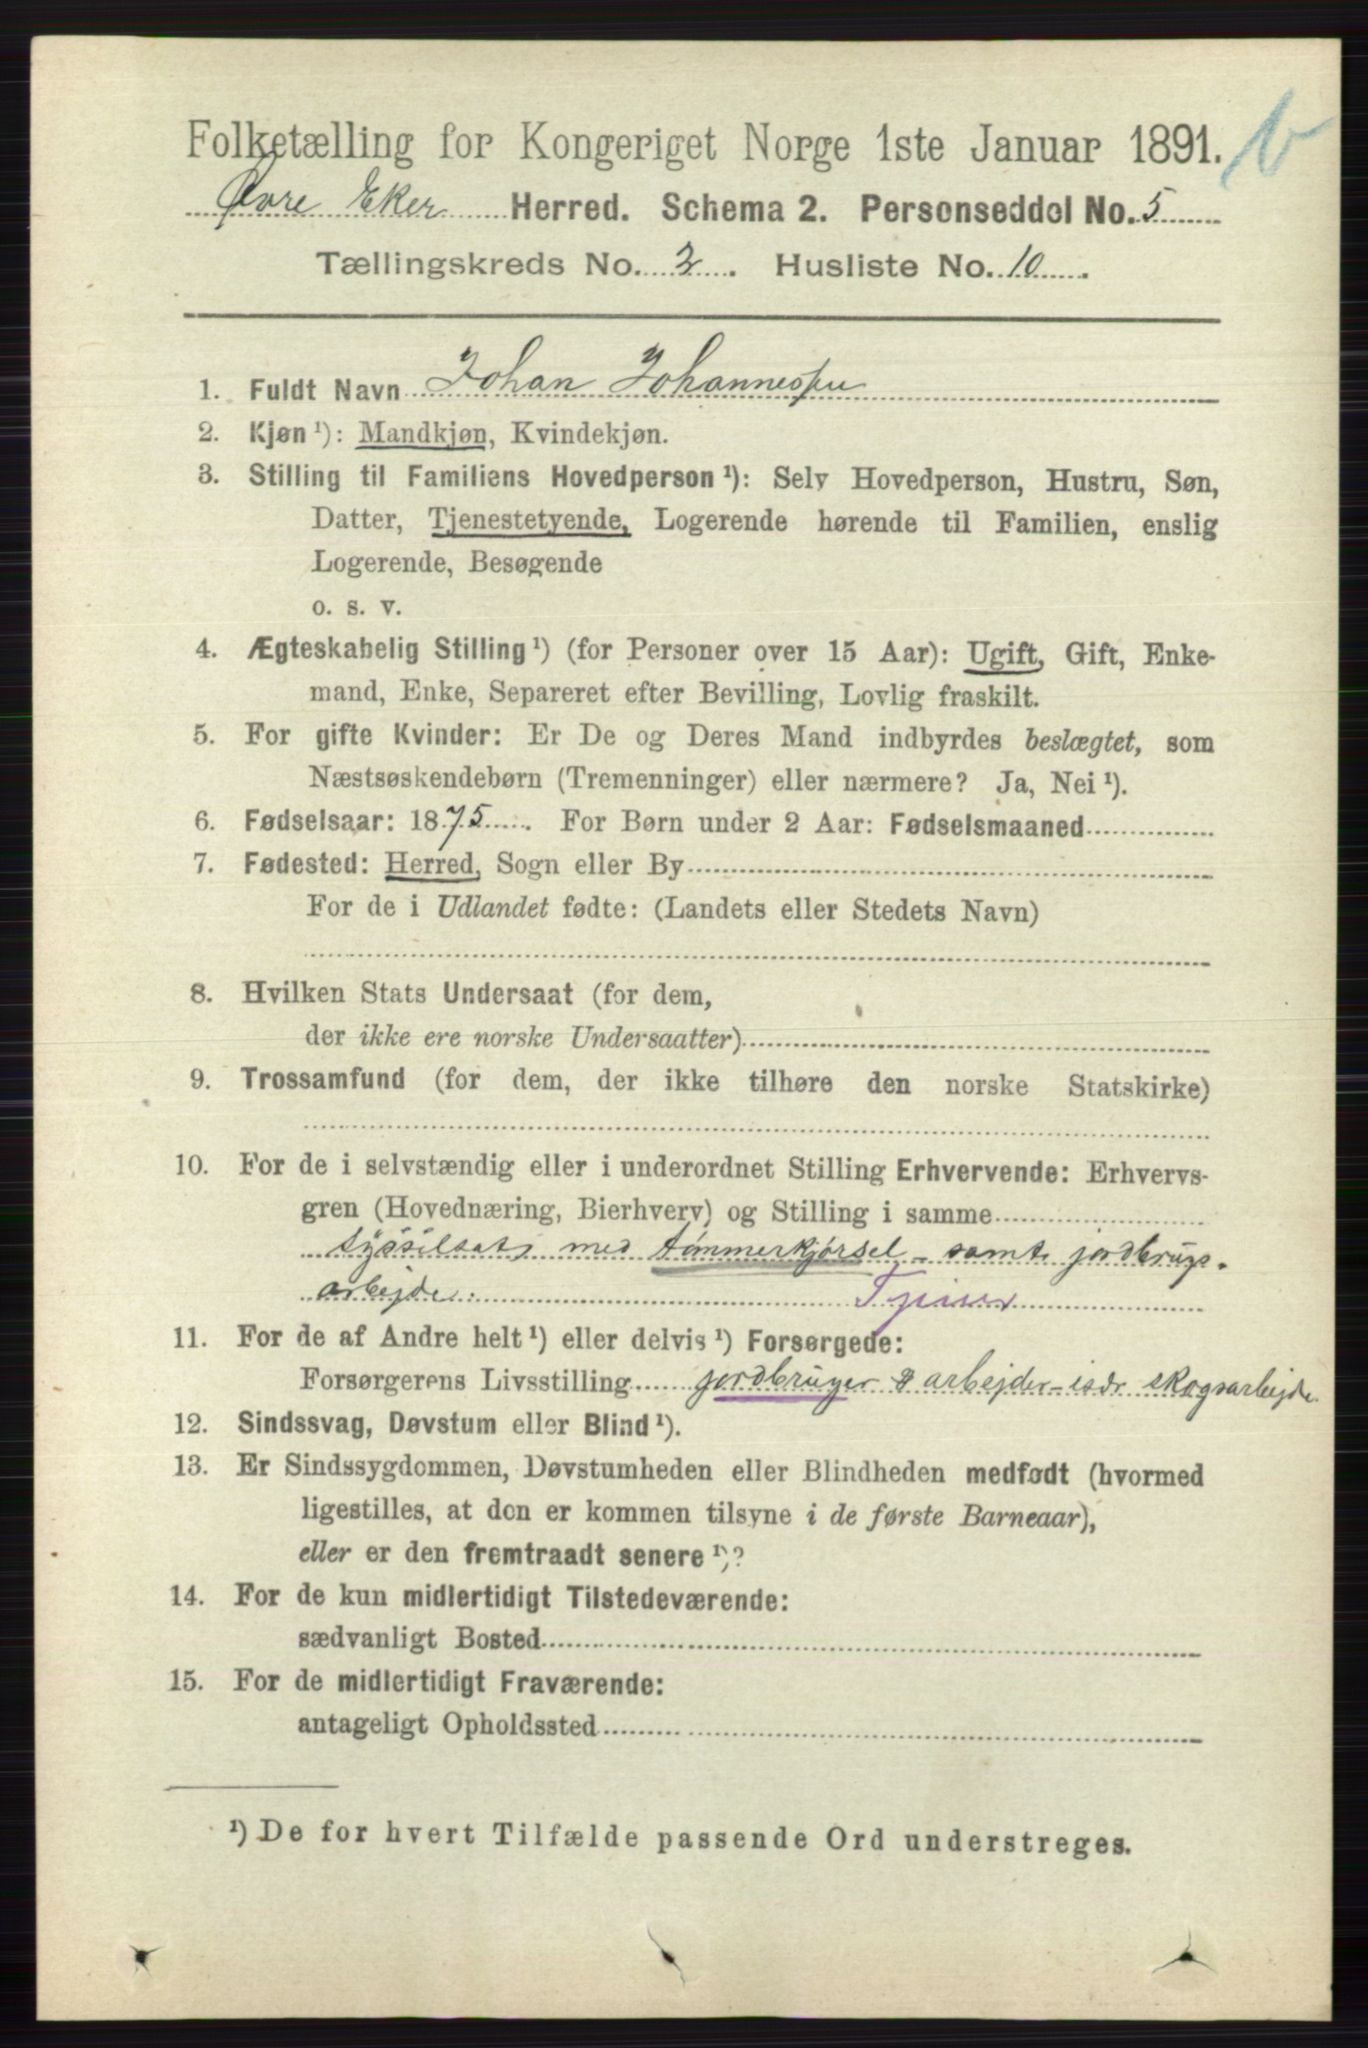 Folketælling for Kongeriget Norge 1ste Januar 1891.
Øvre Eker Herred. Schema 2. Personseddel No. 5
Tællingskreds No. 2. Husliste No. 10.
1. Fuldt Navn Johan Johannessen
2. Kjøn ¹): Mandkjøn, Kvindekjøn.
3. Stilling til Familiens Hovedperson ¹): Selv Hovedperson, Hustru, Søn,
Datter, Tjenestetyende, Logerende hørende til Familien, enslig
Logerende, Besøgende
o. s. v.
4. Ægteskabelig Stilling ¹) (for Personer over 15 Aar): Ugift, Gift, Enke-
mand, Enke, Separeret efter Bevilling, Lovlig fraskilt.
5. For gifte Kvinder: Er De og Deres Mand indbyrdes beslægtet, som
Næstsøskendebørn (Tremenninger) eller nærmere? Ja, Nei ¹).
6. Fødselsaar: 1875. For Børn under 2 Aar: Fødselsmaaned
7. Fødested: Herred, Sogn eller By
For de i Udlandet fødte: (Landets eller Stedets Navn)
8. Hvilken Stats Undersaat (for dem,
der ikke ere norske Undersaatter)
9. Trossamfund (for dem, der ikke tilhøre den norske Statskirke)
10. For de i selvstændig eller i underordnet Stilling Erhvervende: Erhvervs-
gren (Hovednæring, Bierhverv) og Stilling i samme
sysselsat med tømmerkjørsel - samt jordbrugs-
arbejde. Tjener
11. For de af Andre helt ¹) eller delvis ¹) Forsørgede:
Forsørgerens Livsstilling jordbruger & arbejder - især skogsarbejde
12. Sindssvag, Døvstum eller Blind ¹).
13. Er Sindssygdommen, Døvstumheden eller Blindheden medfødt (hvormed
ligestilles, at den er kommen tilsyne i de første Barneaar),
eller er den fremtraadt senere ¹)?
14. For de kun midlertidigt Tilstedeværende:
sædvanligt Bosted
15. For de midlertidigt Fraværende:
antageligt Opholdssted
¹) De for hvert Tilfælde passende Ord understreges.